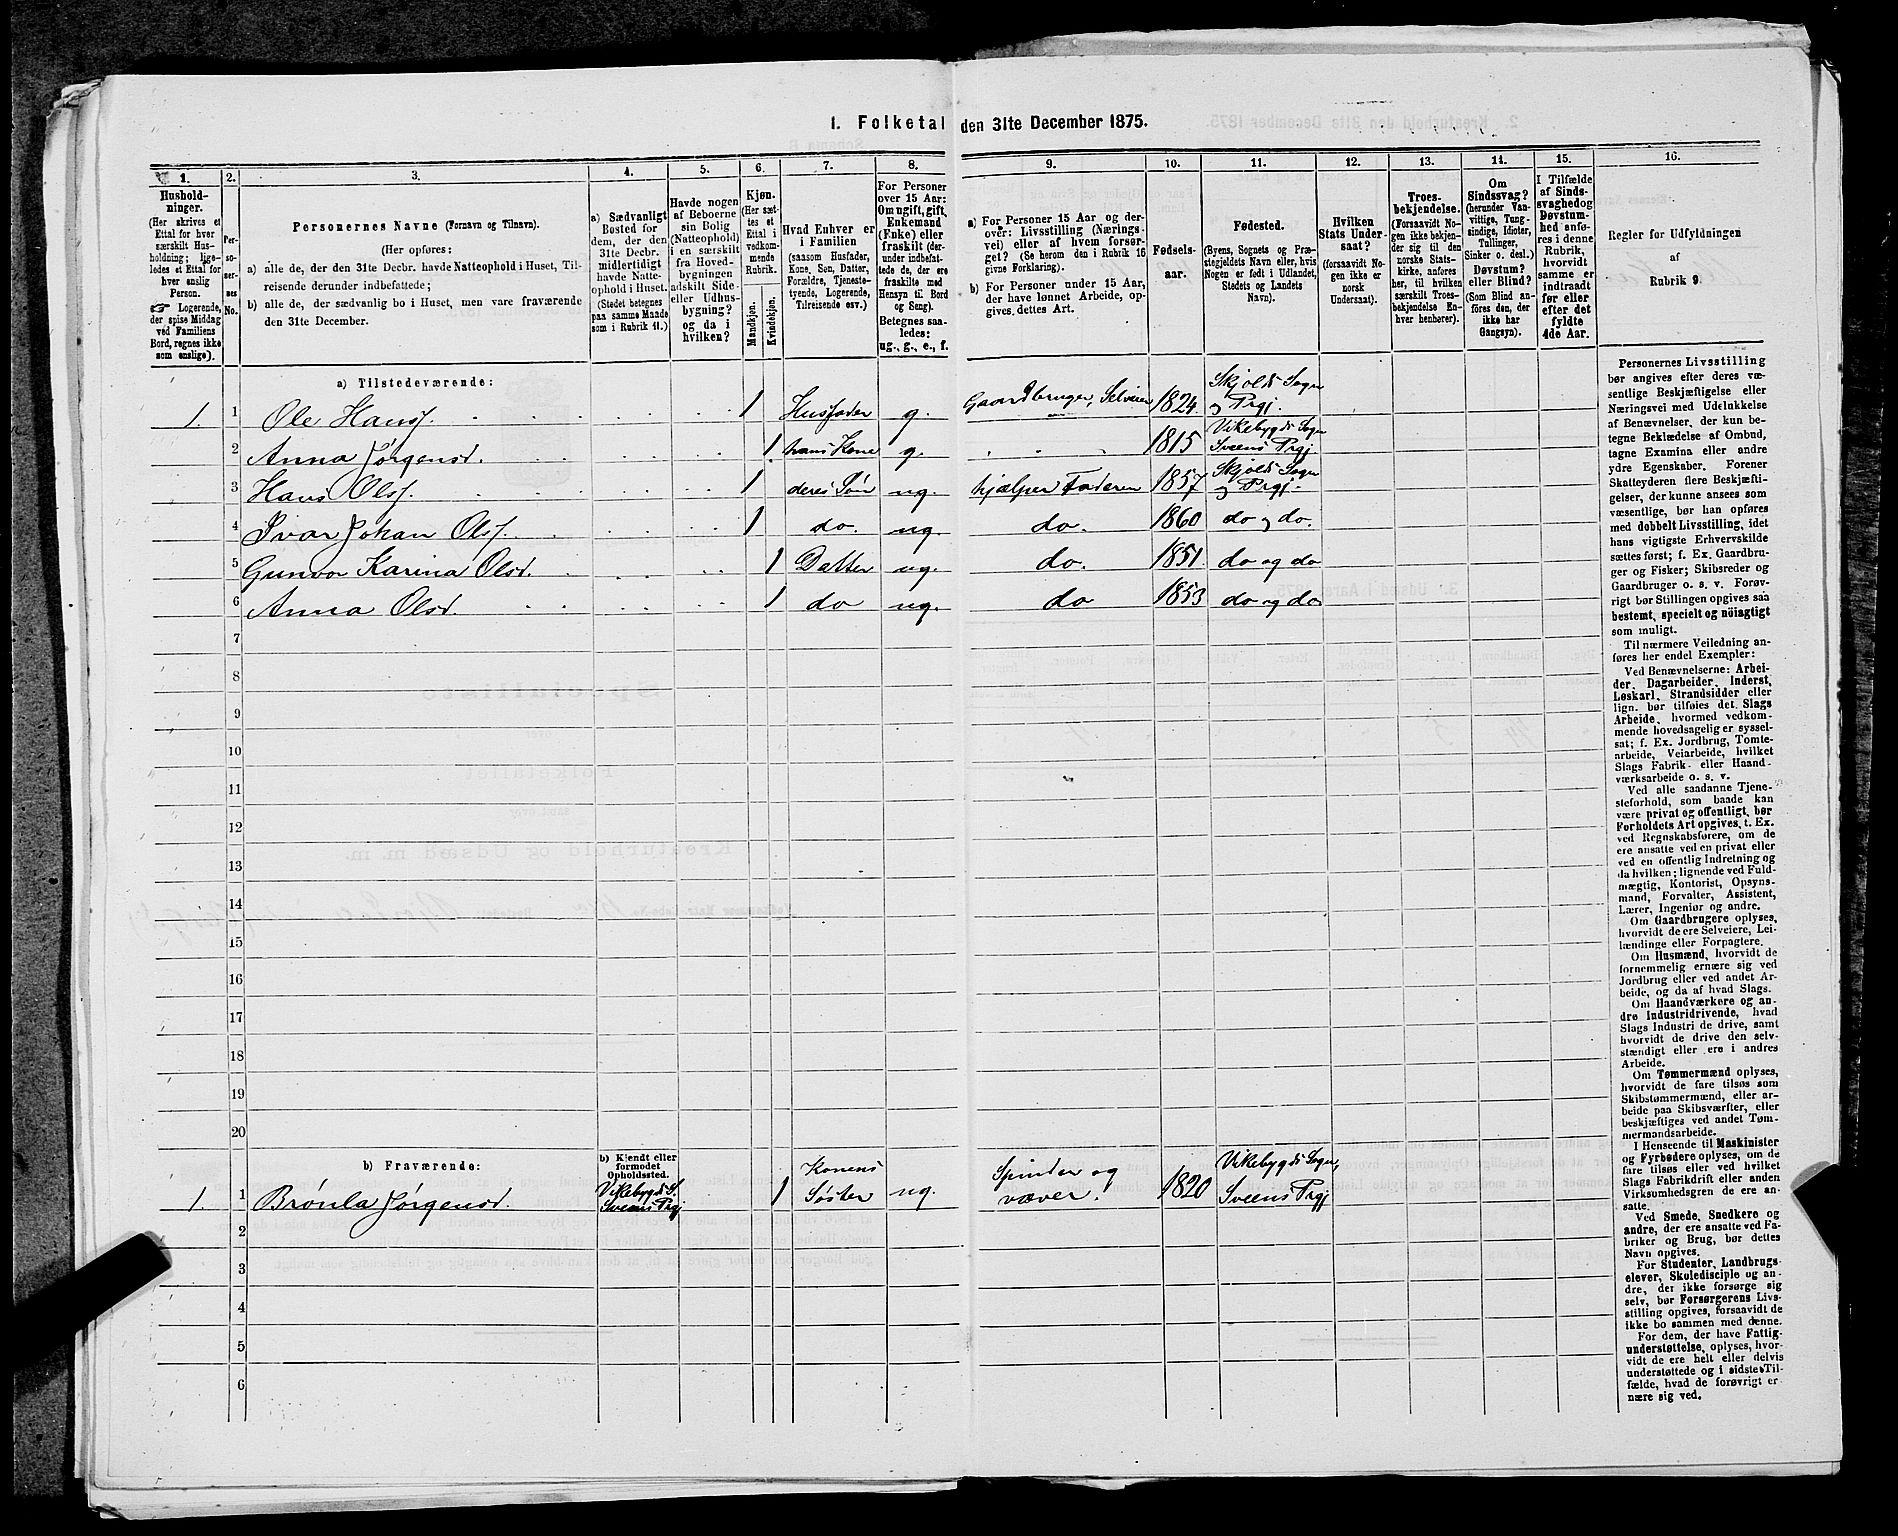 1. Folketal den 31te December 1875.
1. 2. 3. 4. 5. 6. 7. 8. 9. 10. 11. 12. 13. 14. 15. 16.
Hushold-
ninger.
(Her skrives et
Ettal for hver
særskilt Hus-
holdning; lige-
ledes et Ettal for
hver enslig
Person.
☞ Logerende,
der spise Middag
ved Familiens
Bord, regnes ikke
som enslige).
Per-
so-
ner-
nes
No.
Personernes Navne (Fornavn og Tilnavn).
(Her opføres:
a) alle de, der den 31te Decbr. havde Natteophold i Huset, Til-
reisende derunder indbefattede;
b) alle de, der sædvanlig bo i Huset, men vare fraværende
den 31te December.
a) Sædvanligt
Bosted for
dem, der den
31te Decbr.
midlertidigt
havde Natte-
ophold i Huset.
(Stedet betegnes
paa samme Maade
som i Rubrik 11.)
Havde nogen
af Beboerne
sin Bolig
(Natteophold)
i en særskilt
fra Hoved-
bygningen
adskilt Side-
eller Udhus-
bygning?
og da i
hvilken?
Kjøn.
(Her sæt-
tes et
Ettal i
vedkom-
mende
Rubrik.
Mandkjøn.
Kvindekjøn.
Hvad Enhver er
i Familien
(saasom Husfader,
Kone, Søn, Datter,
Forældre, Tjeneste-
tyende, Logerende,
Tilreisende osv.)
For Personer
over 15 Aar:
Om ugift, gift,
Enkemand
(Enke) eller
fraskilt (der-
under indbefat-
tede de, der ere
fraskilte med
Hensyn til Bord
og Seng).
Betegnes saa-
ledes:
ug., g., e., f.
a) For Personer 15 Aar og der-
over: Livsstilling (Nærings-
vei) eller af hvem forsør-
get? (Se herom den i Rubrik 16
givne Forklaring).
b) For Personer under 15 Aar,
der have lønnet Arbeide, op-
gives dettes Art.
Fødsels-
aar.
Fødested.
(Byens, Sognets og Præ-
stegjeldets Navn eller, hvis
Nogen er født i Udlandet,
Stedets og Landets
Navn).
Hvilken
Stats Under-
saat?
(forsaavidt No-
gen ikke er
norsk
Undersaat).
Troes-
bekjendelse.
(Forsaavidt No-
gen ikke bekjen-
der sig til den
norske Stats-
kirke, anføres
her, til hvilken
særskilt Troes-
bekjendelse En-
hver henhører).
Om
Sindssvag?
(herunder Van-
vittige, Tung-
sindige, Idioter,
Tullinger,
Sinker o. desl.)
Døvstum?
eller Blind?
(Som Blind an-
føres den, der
ikke har
Gangsyn).
I Tilfælde
af Sinds-
svaghed og
Døvstum-
hed anfø-
res i denne
Rubrik,
hvorvidt
samme er
indtraadt
før eller
efter det
fyldte
4de Aar.
Regler for Udfyldningen
af
Rubrik 9.
a) Tilstedeværende:
1. 1 Ole Hansf. 1 Husfader g. Gaardbruger, Selveier 1824. Skjolds Sogn og Prgj.
2 Anna Jørgensd. 1. hans Kone g. 1815 Vikebygds Sogn Sveens Prgj.
3 Hans Olsf. 1 deres Søn ug. hjælper Faderen 1857 Skjolds Sogn og Prgj.
4 Ivar Johan Olsf. 1 do. ug. do. 1860 do og do.
5 Gunvor Karina Olsd. 1 Datter ug. do. 1851. do og do
6 Anna Olsd. 1 do ug. do 1853 do og do
7
8
9
10
11
12
13
14
15
16
17
18
19
20
b) Fraværende:
b) Kjendt eller
formodet
Opholdssted.
1. 1 Brønla Jørgensd. Vikebygds S. Sveens Prgj 1 Konens Søster ug. Spinder og væver. 1820 Vikebygds Sogn, Sveens Prgj
2
3
4
5
6
Personernes Livsstilling
bør angives efter deres væ-
sentlige Beskjæftigelse eller
Næringsvei med Udelukkelse
af Benævnelser, der kun be-
tegne Beklædelse af Ombud,
tagne Examina eller andre
ydre Egenskaber. Forener
Skatteyderen flere Beskjæfti-
gelser, der kunne ansees som
væsentlige, bør han opføres
med dobbelt Livsstilling, idet
hans vigtigste Erhvervskilde
sættes først; f. Ex. Gaardbru-
ger og Fisker; Skibsreder og
Gaardbruger o. s. v. Forøv-
rigt bør Stillingen opgives saa
bestemt, specielt og nöiagtigt
som muligt.
Til nærmere Veiledning an-
føres her endel Exempler:
Ved Benævnelserne: Arbei-
der, Dagarbeider, Inderst,
Løskarl, Strandsidder eller
lign. bør tilføies det Slags
Arbeide, hvormed vedkom-
mende hovedsagelig er syssel-
sat; f. Ex. Jordbrug, Tomte-
arbeide, Veiarbeide, hvilket
Slags Fabrik- eller Haand-
værksarbeide o. s. v.
Ved alle saadanne Tjene-
steforhold, som baade kan
være privat og offentligt, bør
Forholdets Art opgives, t. Ex.
ved Regnskabsførere, om de
ere ansatte ved en privat eller
ved en offentlig Indretning og
da hvilken; lignende ved Fuld-
mægtig, Kontorist, Opsyns-
mand, Forvalter, Assistent,
Lærer, Ingeniør og andre.
Om Gaardbrugere oplyses,
hvorvidt de ere Selveiere, Lei-
lændinge eller Forpagtere.
Om Husmænd, hvorvidt de
fornemmelig ernære sig ved
Jordbrug eller ved andet Ar-
beide, og da af hvad Slags.
Om Haandværkere og an-
dre Industridrivende, hvad
Slags Industri de drive, samt
hvorvidt de drive den selv-
stændigt eller ere i andres
Arbeide.
Om Tømmermænd oplyses,
hvorvidt de fare tilsøs som
Skibstømmermænd, eller ar-
beide paa Skibsværfter, eller
beskjæftiges ved andet Tøm-
mermandsarbeide.
I Henseende til Maskinister
og Fyrbødere oplyses, om de
fare tilsøs eller ved hvilket
Slags Fabrikdrift eller anden
Virksomhedsgren de ere an-
satte.
Ved Smede, Snedkere og
andre, der ere ansatte ved Fa-
briker og Brug, bør dettes
Navn opgives.
For Studenter, Landbrugs-
elever, Skoledisciple og an-
dre, der ikke forsørge sig
selv, bør Forsørgerens Livs-
stilling opgives, forsaavidt de
ikke bo sammen med denne.
For dem, der have Fattig-
understøttelse, oplyses, hvor-
vidt de ere helt eller delvis
understøttede og i sidste Til-
fælde, hvad de forøvrigt er-
nære sig ved.